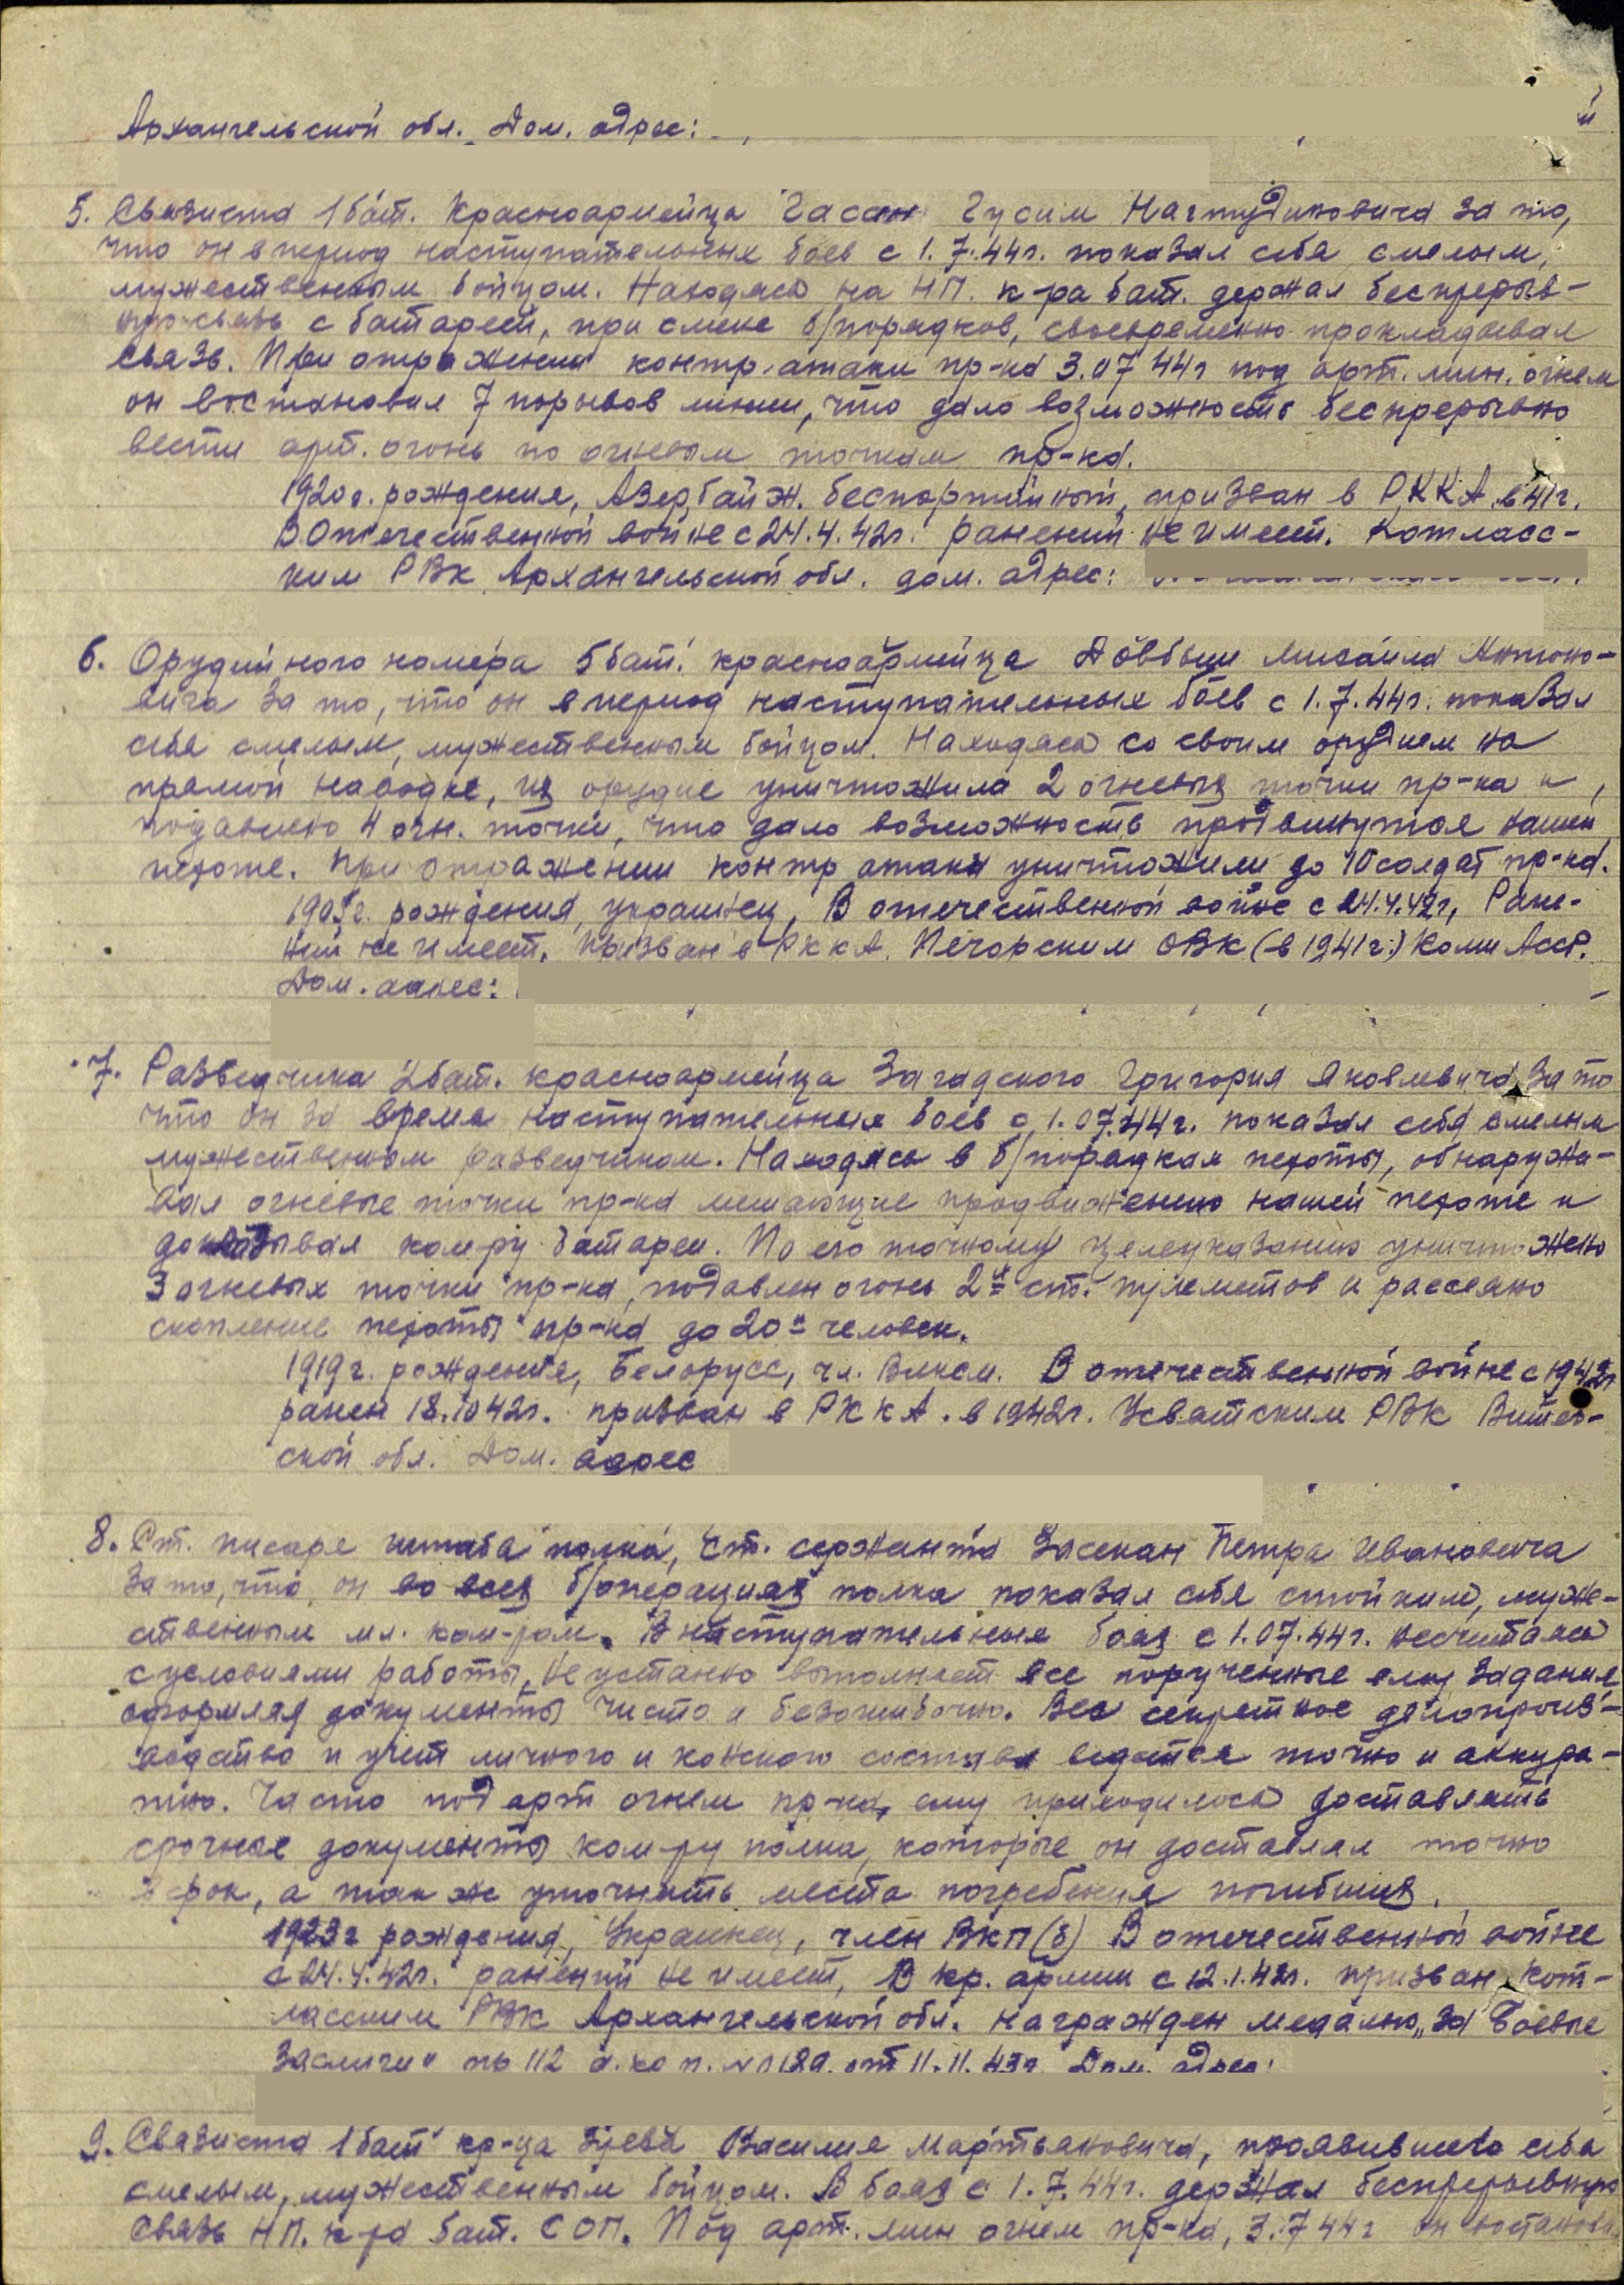 Архангельской обл. Дом. адрес:
5. Связиста 1 бат. Красноармейца Гасан Гусим Нагмудиновича за то,
что он в период наступательных боев с 1.7.44г. показал себя смелым,
мужественным бойцом. Находясь на НП. к-ра бат. держал беспрерыв-
ную связь с батареей, при смене б/порядков, своевременно прокладывал
связь. При отражении контр.атаки пр-ка 3.07 44г под арт. мин. огнем
он востановил 7 порывов линии, что дало возможность беспрерывно
вести арт. огонь по огневым точкам пр-ка.
1920г. рождения, Азербайж. беспартийный, призван в РККА в 41г.
В Отечественной войне с 24.4.42г. ранений не имеет. Котласс-
ким РВК Архангельской обл. дом. адрес:
6. Орудийного номера 5 бат. красноармейца Довбыш Михаила Антоно-
вича за то, что он в период наступательных боев с 1.7.44г. показал
себя смелым, мужественным бойцом. Находясь со своим орудием на
прямой наводке, из орудие уничтожила 2 огневых точки пр-ка и
подавлено 4 огн. точки, что дало возможность продвинутся нашей
пехоте. При отражении контр атаки уничтожили до 10 солдат пр-ка.
рождения, украинец, В отечественной войне с 24.4.42г, Ране-
ний не имеет, призван в РККА. Печорским ОВК (в 1941г.) Коми АССР.
Дом. адрес:
7. Разведчика 2 бат. красноармейца Загадского Григория Яковлевича за то
что он за время наступательных боев с 1.07.44г. показал себя смелым
мужественным разведчиком. Находясь в б/порядках пехоты, обнаружи-
вал огневые точки пр-ка мешающие продвижению нашей пехоте и
докладывал ком-ру батареи. По его точному целеуказанию уничтожено
3 огневых точки пр-ка, подавлен огонь 2х ст. пулеметов и рассеяно
скопление пехоты пр-ка до 20и человек.
1919г. рождения, Белорусс, чл. Влксм. В отечественной войне с 1942г
ранен 18.10 42г. призван в РККА. в 1942г. Усвятским РВК Витеб-
ской обл. Дом. адрес
8. Ст. писаря штаба полка, ст. сержанта Засекан Петра Ивановича
За то, что он во всех б/операциях полка показал себя стойким, муже-
ственным мл. ком-ром. В наступательных боях с 1.07.44г. несчитаясь
с условиями работы, неустанно выполняет все порученные ему задания,
оформляя документы чисто и безошибочно. Все секретное делопроиз-
водство и учет личного и конского состава ведется точно и аккура-
тно. Часто под арт огнем пр-ка, ему приходилось доставлять
срочные документы ком-ру полка, которые он доставлял точно
в срок, а так же уточнять места погребения погибших.
1923г рождения, Украинец, член ВКП(б) В отечественной войне
с 24.4.42г. ранений не имеет, В кр. армии с 12.1.42г. призван Кот-
ласским РВК Архангельской обл. награжден медалью „За Боевые
Заслуги" пр 112 с.к. п. №018п. от 11.11.43г. Дом. адрес:
9. Связиста 1 бат кр-ца Зуева Василия Мартьяновича, проявившего себя
смелым, мужественным бойцом. В боях с 1.7.44г. держал беспрерывную
связь НП. к-ра бат. с ОП. Под арт. мин огнем пр-ка, 3.7 44г он